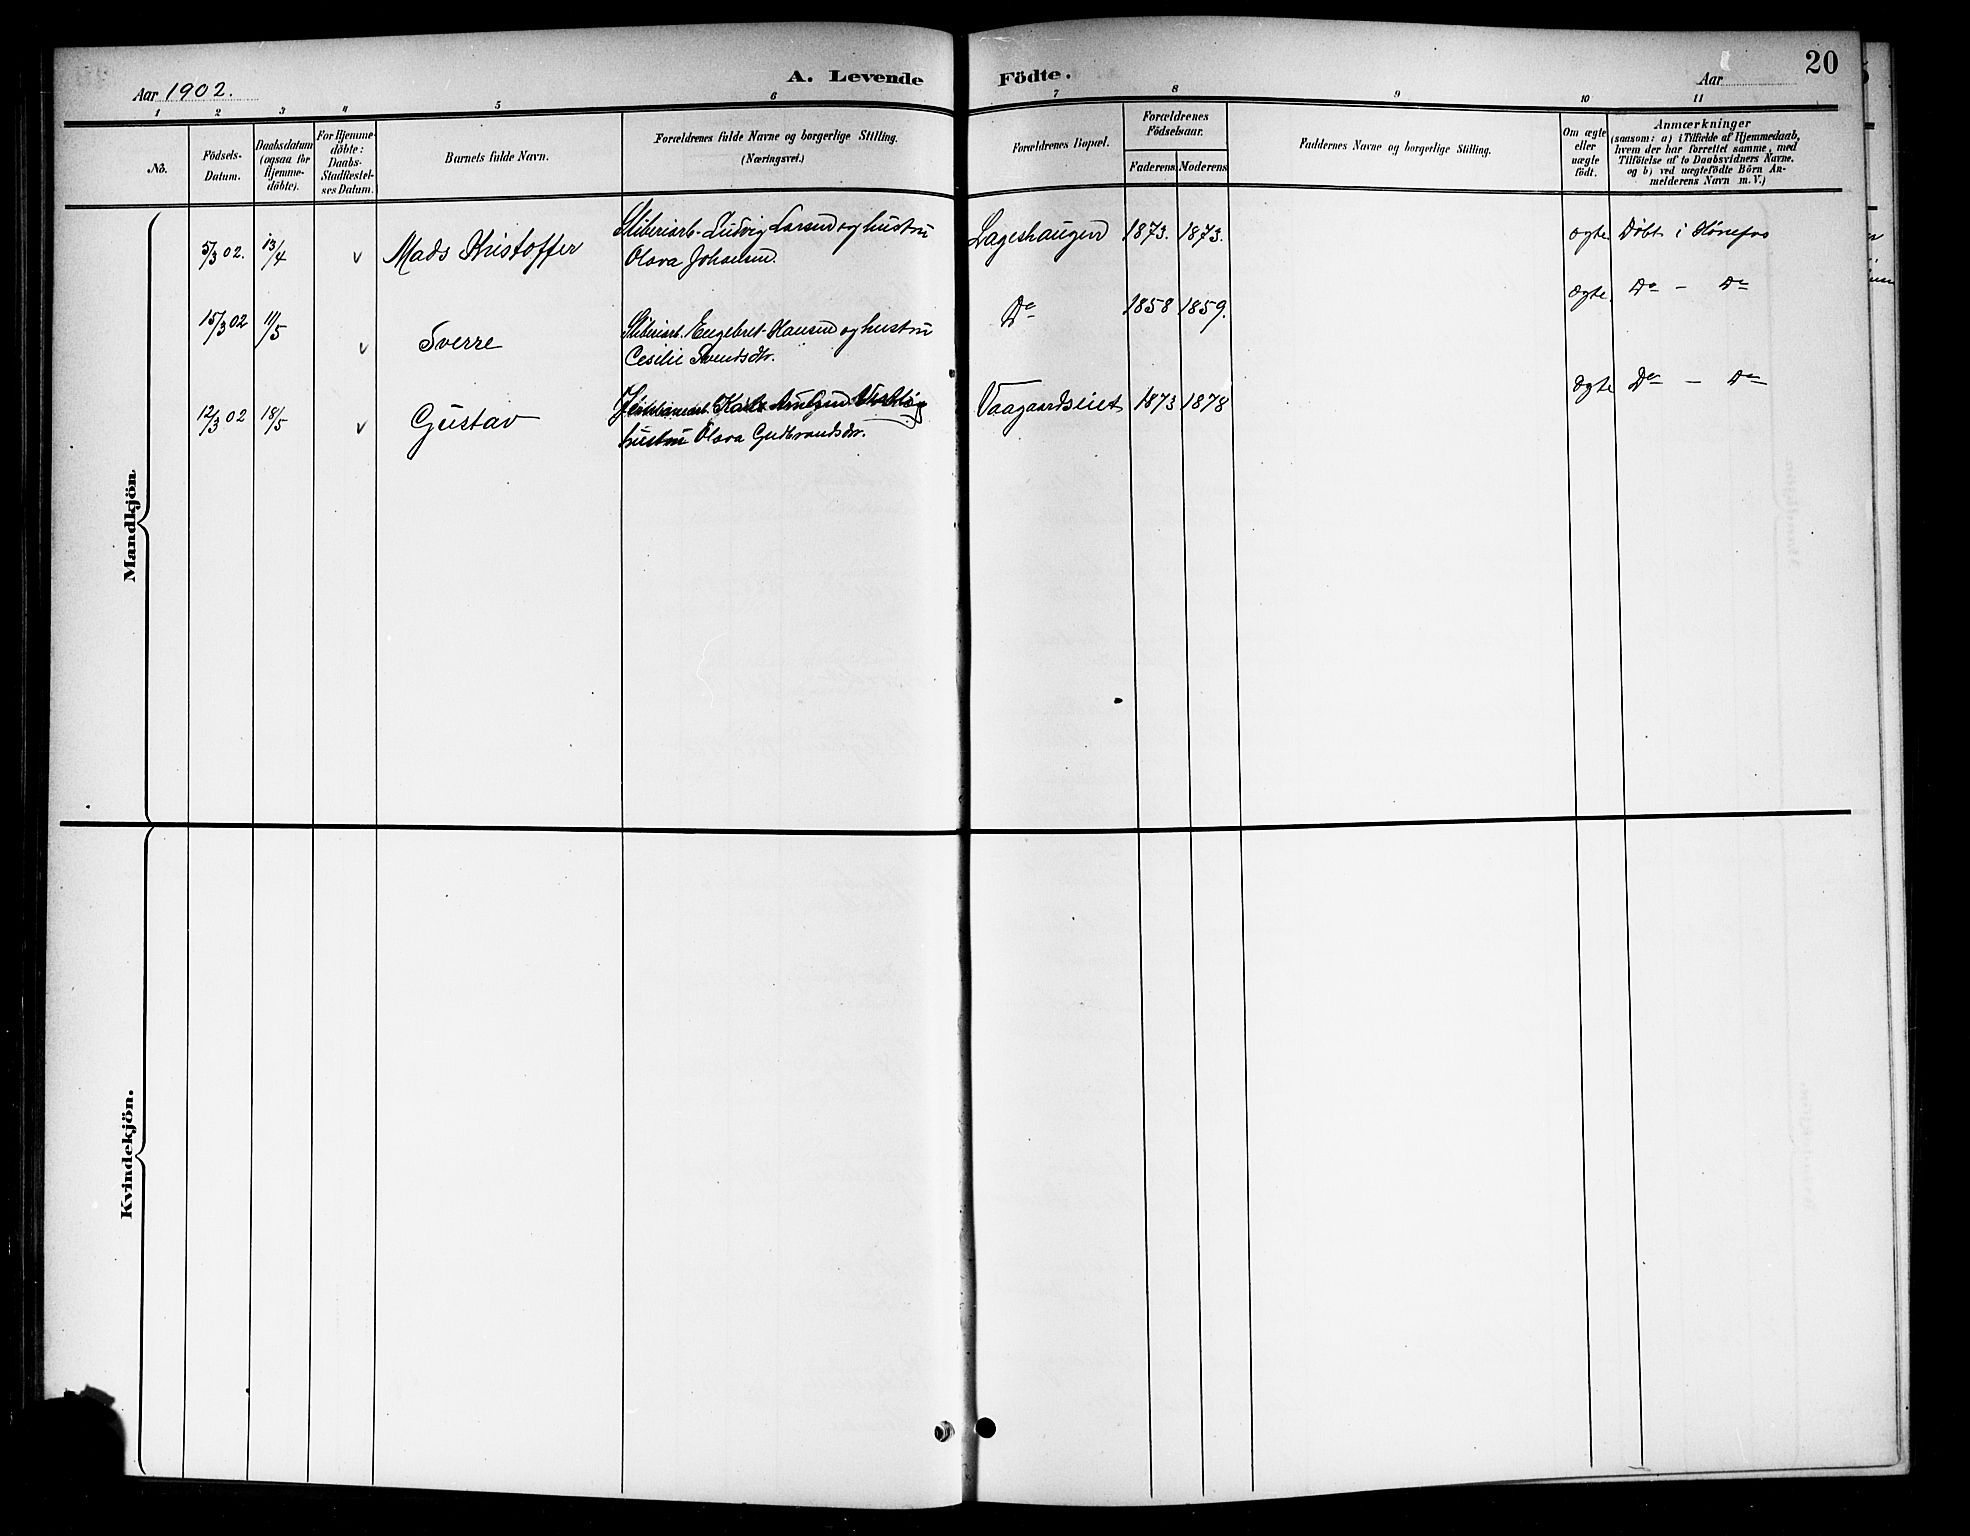 Aar 1902.
A. Levende Födte.
Aar
20
1 2 3 4 5 6 7 8 9 10 11
No.
Födsels-
Datum.
Daabsdatum
(ogsaa for
Hjemme-
döbte).
For Hjemme-
döbte:
Daabs-
Stadfæstel-
ses Datum.
Barnets fulde Navn.
Forældrenes fulde Navne og borgerlige Stilling.
(Næringsvei.)
Forældrenes Bopæl.
Forældrenes
Födselsaar.
Faderens
Moderens
Faddernes Navne og borgerlige Stilling.
Om ægte
eller
uægte
födt.
Anmærkninger
(saasom: a) i Tilfælde af Hjemmedaab,
hvem der har forrettet samme, med
Tilföielse af to Daabsvidners Navne.
og b) ved uægtefödte Börn An-
melderens Navn m. V.)
Mandkjön
5/3 02. 13/4 v Mads Kristoffer Sliberiarb. Ludvig Larsen og hustru Lageshaugen 1873. 1873. ægte Døbt i Hönefos
Olava Johansen.
15/3 02 11/5 v Sverre Sliberiarb. Engebret Hansen og hustru Do 1858 1859. ægte. Do - Do
Cesilie Svendsdtr.
12/3 02 18/5 v Gustav Vaagaardseiet 1873 1878 ægte Do - Do
hustru Olava Gudbrandsdtr.
Kvindekjön.